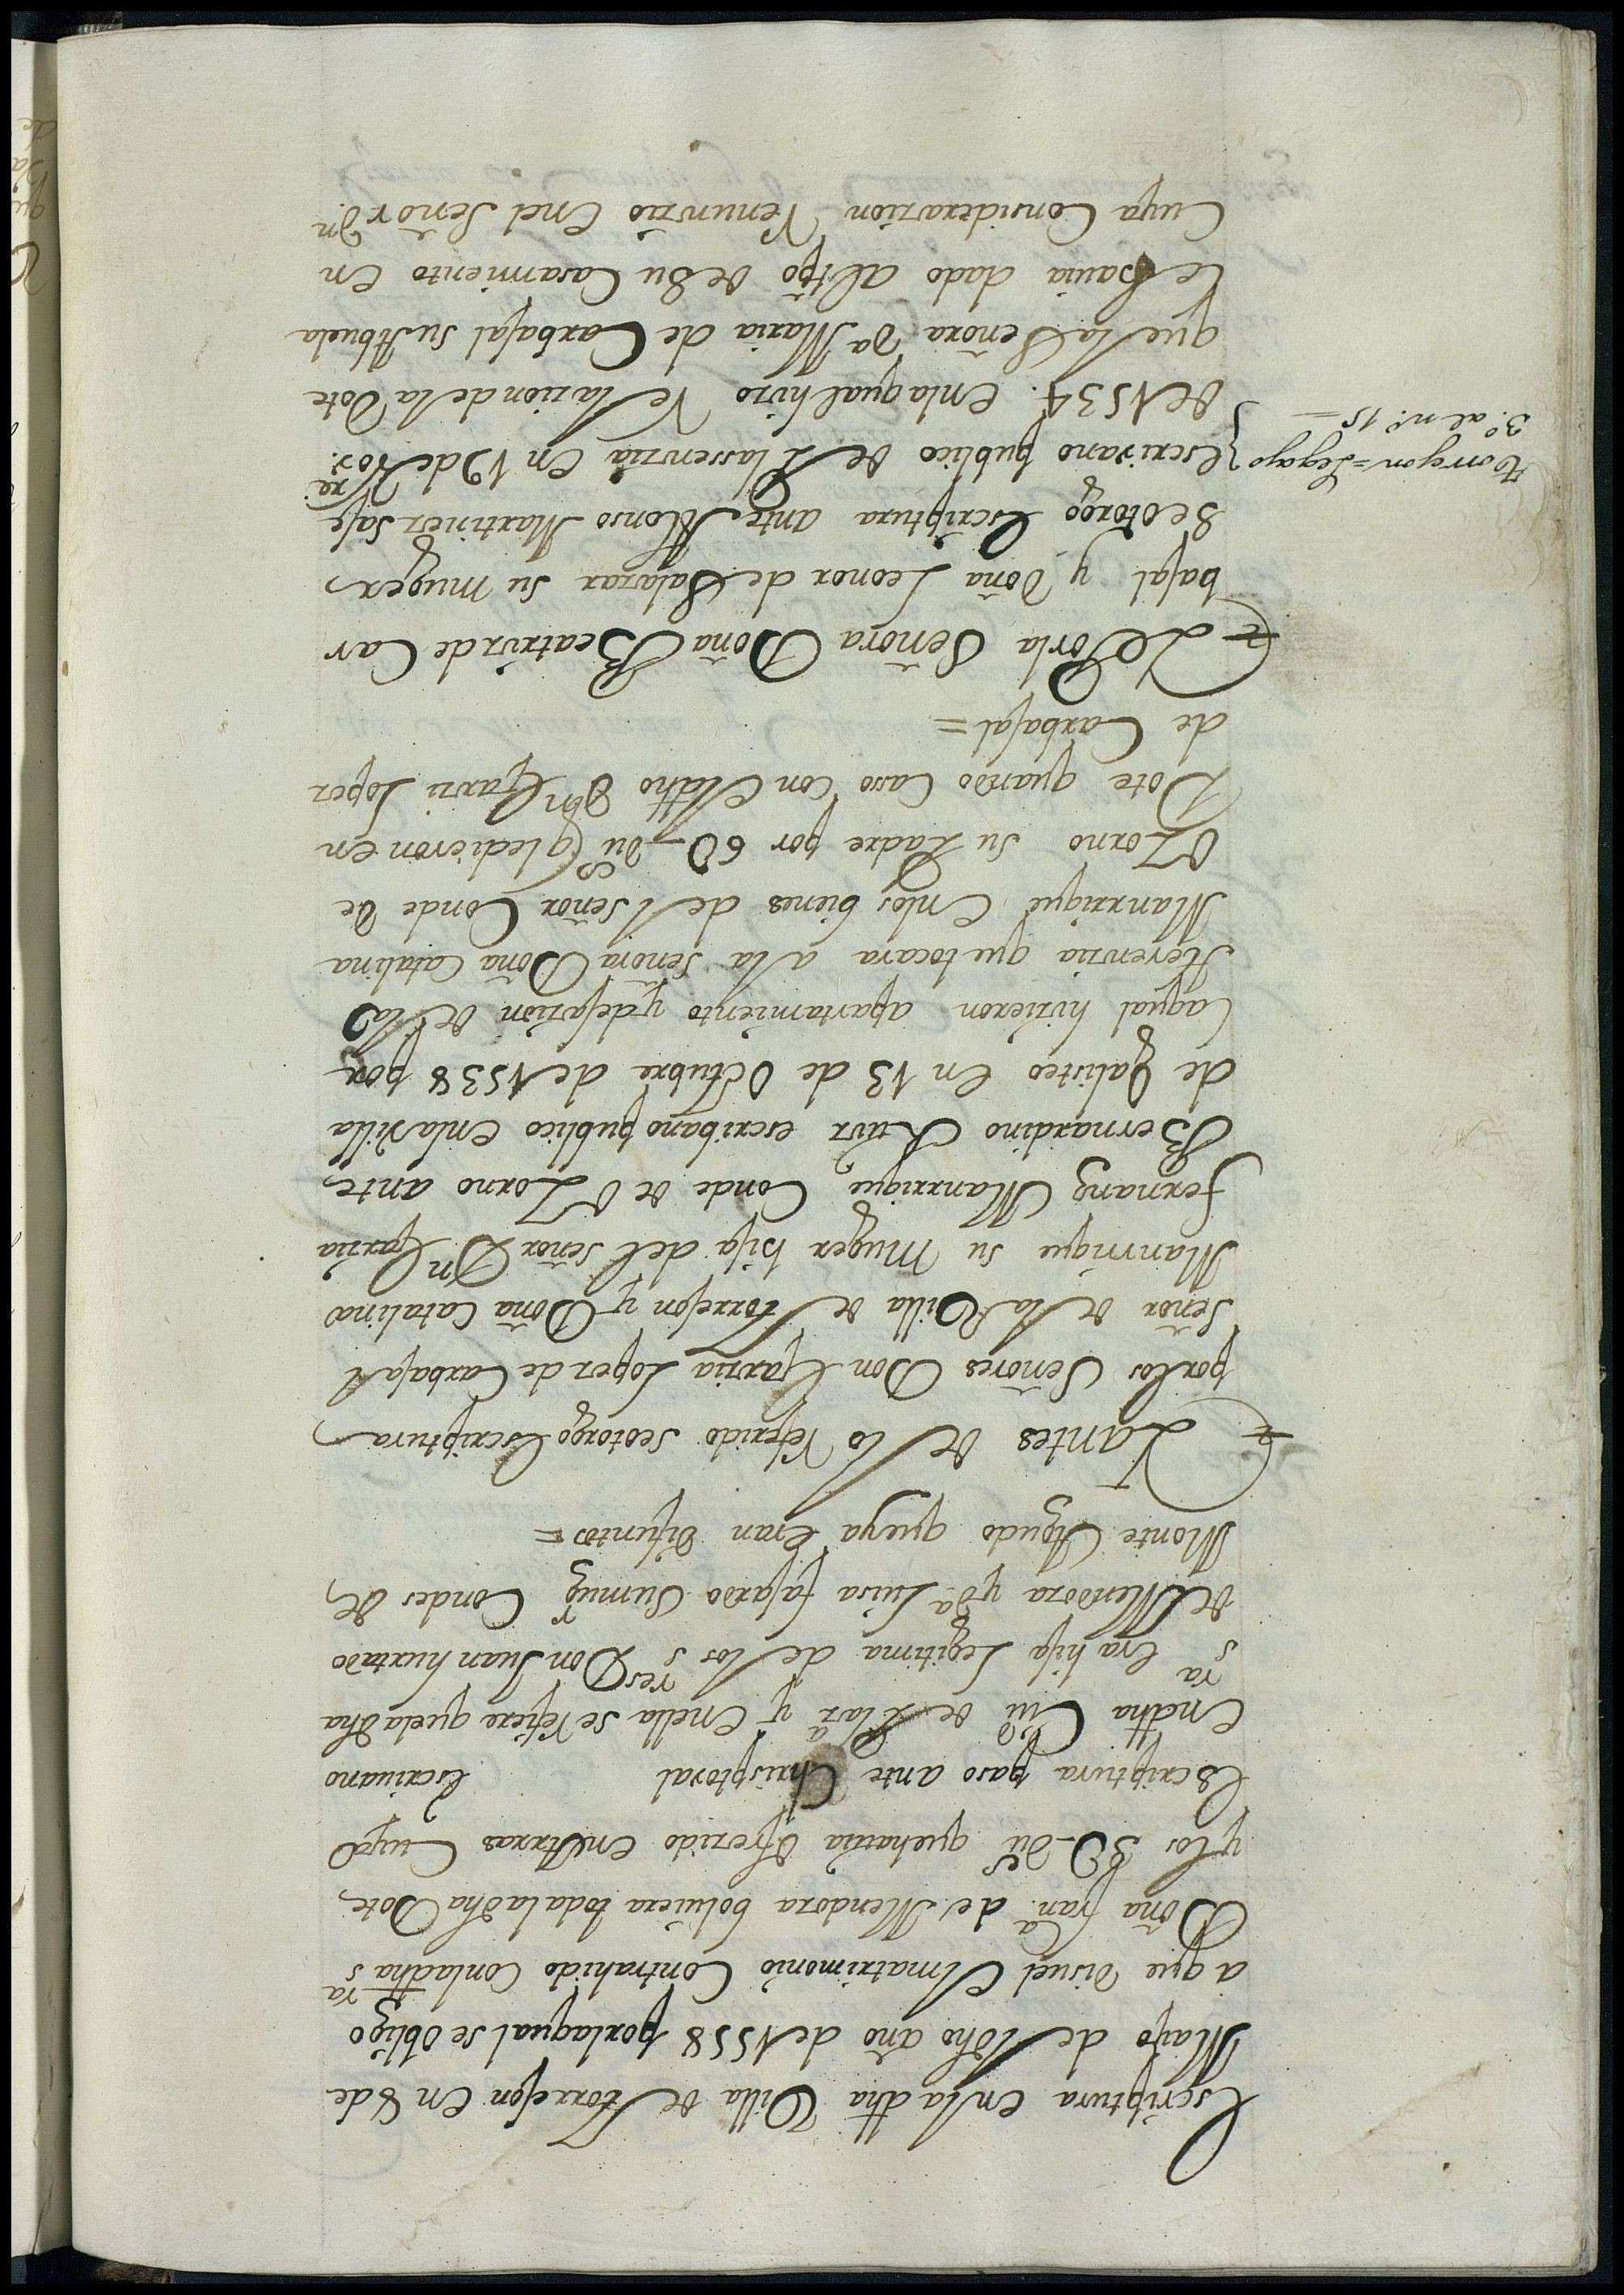 Escriptura en la dha Villa de Torrejon en 8 de
Mayo de dho año de 1558 por la qual se obligo
a que disuel el matrimonio Contrahido Con la dha s.ra
Doña fran.ca de Mendoza bolviera toda la dha Dote
y los 3D du.s que havia ofrezido en Arras Cuya
Escriptura paso ante Chrisptoval Escriuano
En dha Ciu.d de Plaz.a y En ella se refiere que la dha
s.ra Era hija Legitima de los s.res Don Juan hurtado
de Mendoza y d.a Luisa fajardo su mug.r Condes de
Monte Agudo que ya Eran difuntos =
Y antes de lo referido se otorgo Escriptura
por los Señores Don Garzia Lopez de Carbajal
Señor de la Villa de Torrejon y Doña Catalina
Manrrique su Muger hija del señor D.n Garzia
Fernan.z Manrrique Conde de Osorno ante
Bernardino Ruiz escribano publico en la Villa
de Galisteo En 13 de Octubre de 1538 por
la qual hizieron apartamiento y dejazion de la
Herenzia que tocara a la señora Doña Catalina
Manrrique En los bienes del señor Conde de
Osorno su Padre por 6D du.os q le dieron en
Dote quando Caso con el dho d.n Garzi Lopez
de Carbajal =
Y Por la Señora Doña Beatriz de Car
bajal y Doña Leonor de Salazar su muger
Se otorgo Escriptura ante Alonso Martinez
Escrivano publico de Plassenzia En 19 de Nov.re
de 1534. En la qual hizo Relazion de la Dote
que la Señora D.a Maria de Carbajal su Abuela
le havia dado al tpo de su Casamiento En
Cuya Considerazion Renunzio En el Señor D.n
Torrejon = Legajo
3.º al n.º 15 =